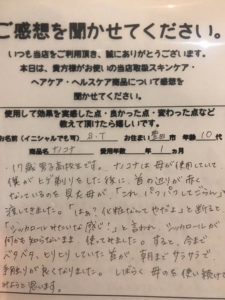 ご感想を聞かせてください。
いつも当店をご利用頂き、誠にありがとうございます。
本日は、貴方様がお使いの当店取扱スキンケア・
ヘアケア・ヘルスケア商品について感想を
聞かせてください。
使用して効果を感じた点・良かった点・変わった点など
教えて頂けたら嬉しいです。
お名前(イニシャルでも可) S・T お住まい 市 年齢 10代
商品名 ナノコナ 使用年数 1ヵ月
・17歳男子高校生です。ナノコナは母が使用していて
僕がヒゲ剃りをした後に、首の辺りが赤く
なっているのを見た母が、「これパウパウしてごらん」と
渡してきました。「はぁ?化粧なんてやだよ」と断ると
「シッカロールみたいな感じ!」と言われ、シッカロールが
何かも知らないまま使ってみました。すると、今まで
ベタベタ、ヒリヒリしていた首が、朝までサラサラで
手触りが良くなりました。しばらく母のを使い続けて
みようと思います。